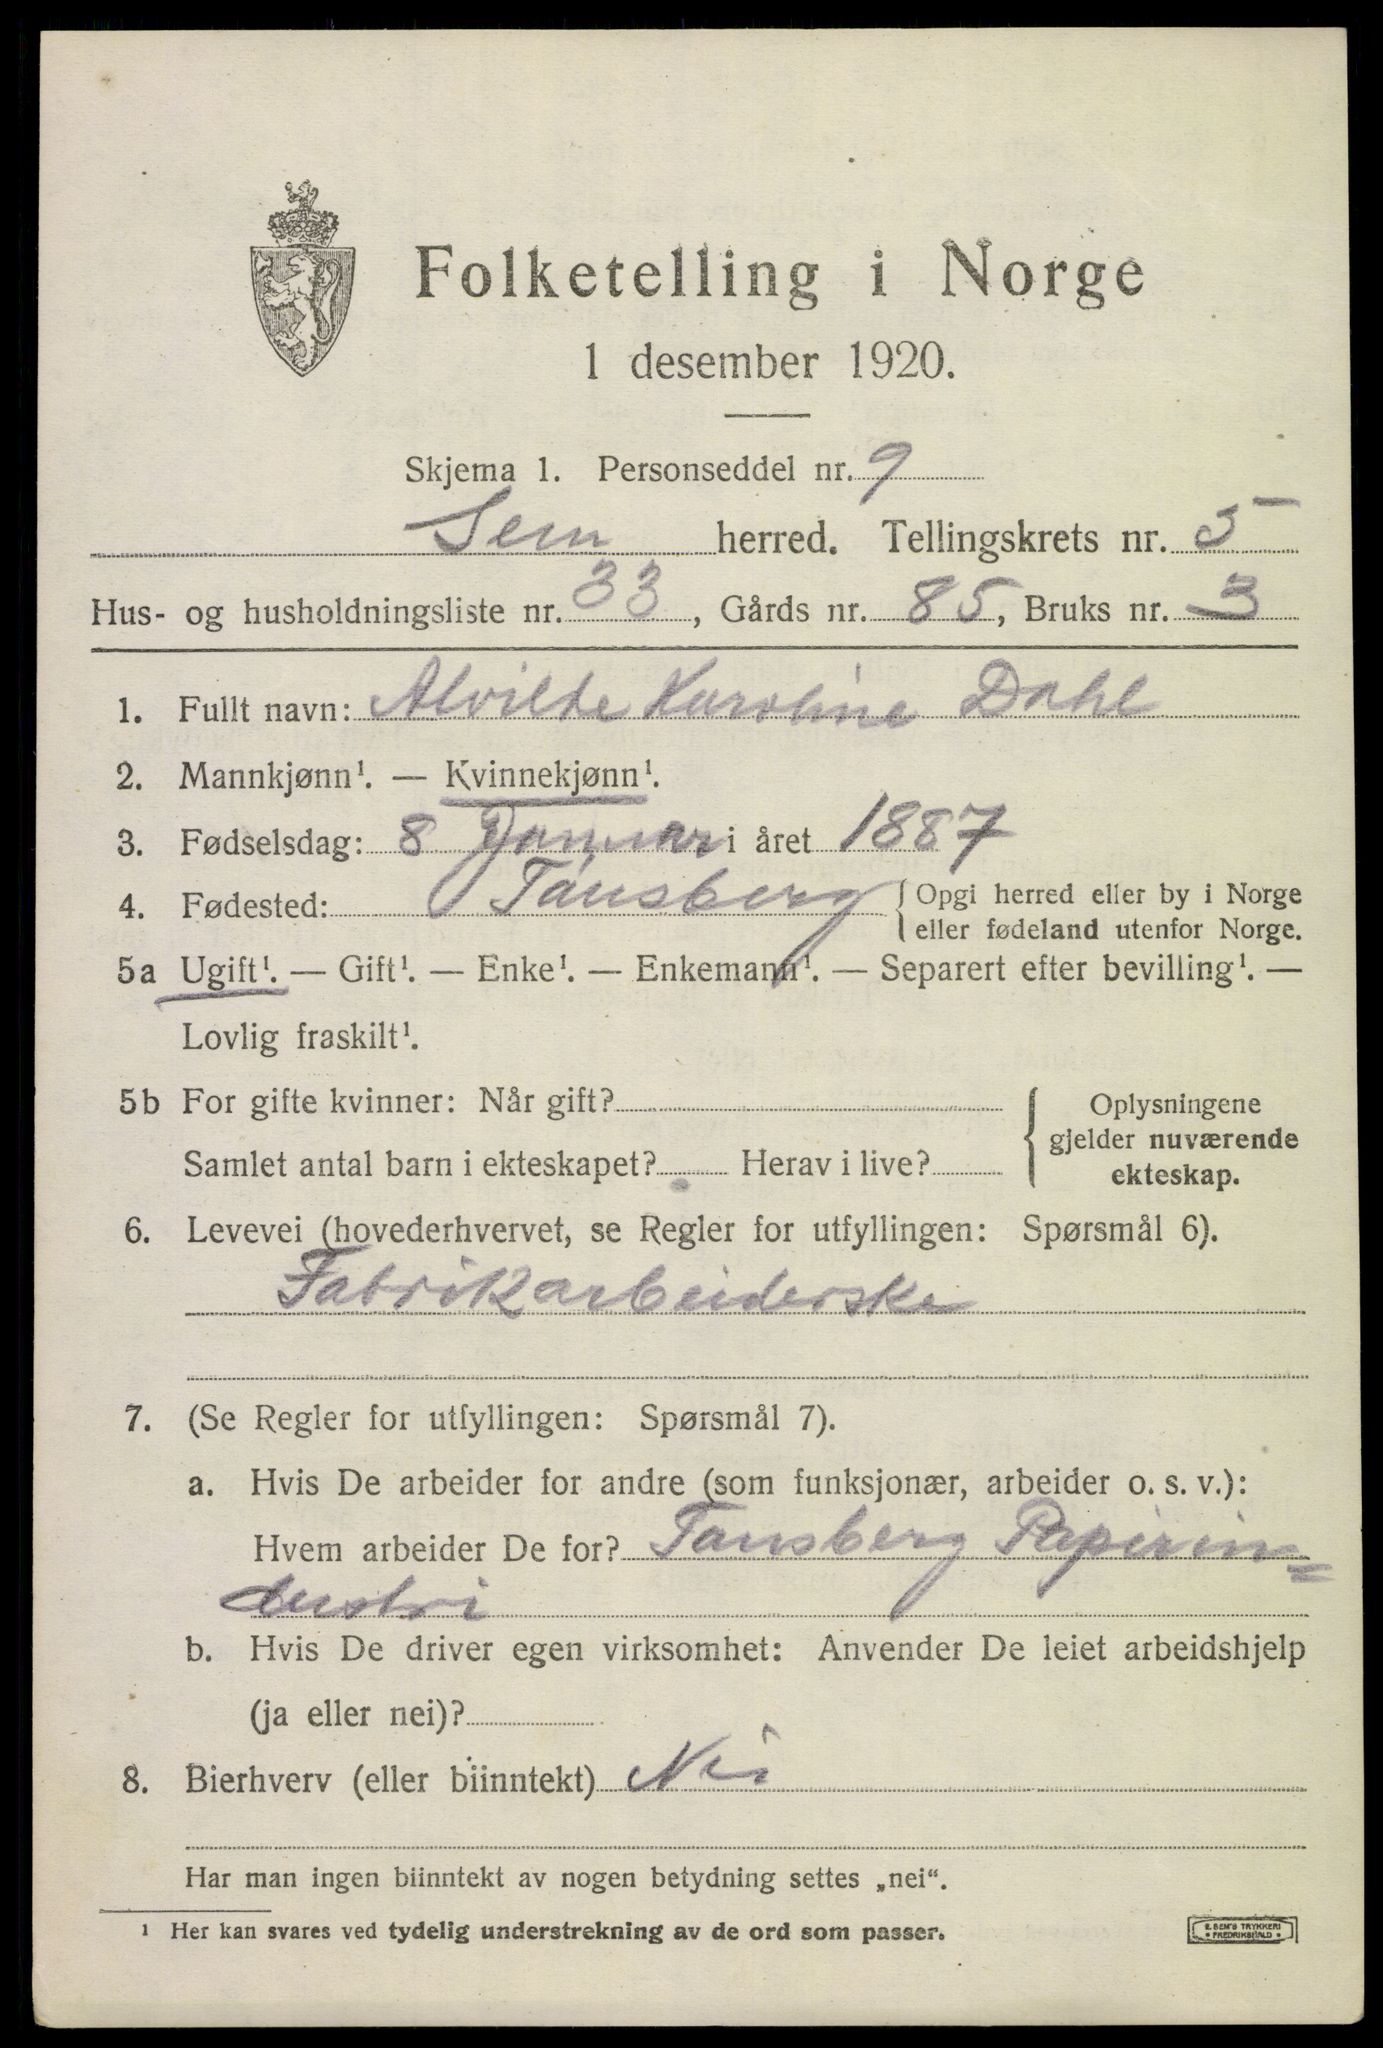 Folketelling i Norge
1 desember 1920.
Skjema 1. Personseddel nr. 9
Sem herred. Tellingskrets nr. 5
Hus- og husholdningsliste nr. 33, Gårds nr. 85, Bruks nr. 3
1. Fullt navn: Alvilde Karoline Dahl
2. Mannkjønn¹. — Kvinnekjønn¹.
3. Fødselsdag: 8 Januar i året 1887
4. Fødested: Tønsberg { Opgi herred eller by i Norge
eller fødeland utenfor Norge.
5a Ugift¹. — Gift¹. — Enke¹. — Enkemann¹. — Separert efter bevilling¹. —
Lovlig fraskilt¹.
5b For gifte kvinner: Når gift?
Samlet antal barn i ekteskapet? Herav i live?
{ Oplysningene
gjelder nuværende
ekteskap.
6. Levevei (hovederhvervet, se Regler for utfyllingen: Spørsmål 6).
Fabrikarbeiderske
7. (Se Regler for utfyllingen: Spørsmål 7).
a. Hvis De arbeider for andre (som funksjonær, arbeider o. s. v.):
Hvem arbeider De for? Tønsberg Papirin=
dustri
b. Hvis De driver egen virksomhet: Anvender De leiet arbeidshjelp
(ja eller nei)?
8. Bierhverv (eller biinntekt) Nei
Har man ingen biinntekt av nogen betydning settes „nei“.
¹ Her kan svares ved tydelig understrekning av de ord som passer.
E. SEM'S TRYKKERI
• FREDRIKSHALD •